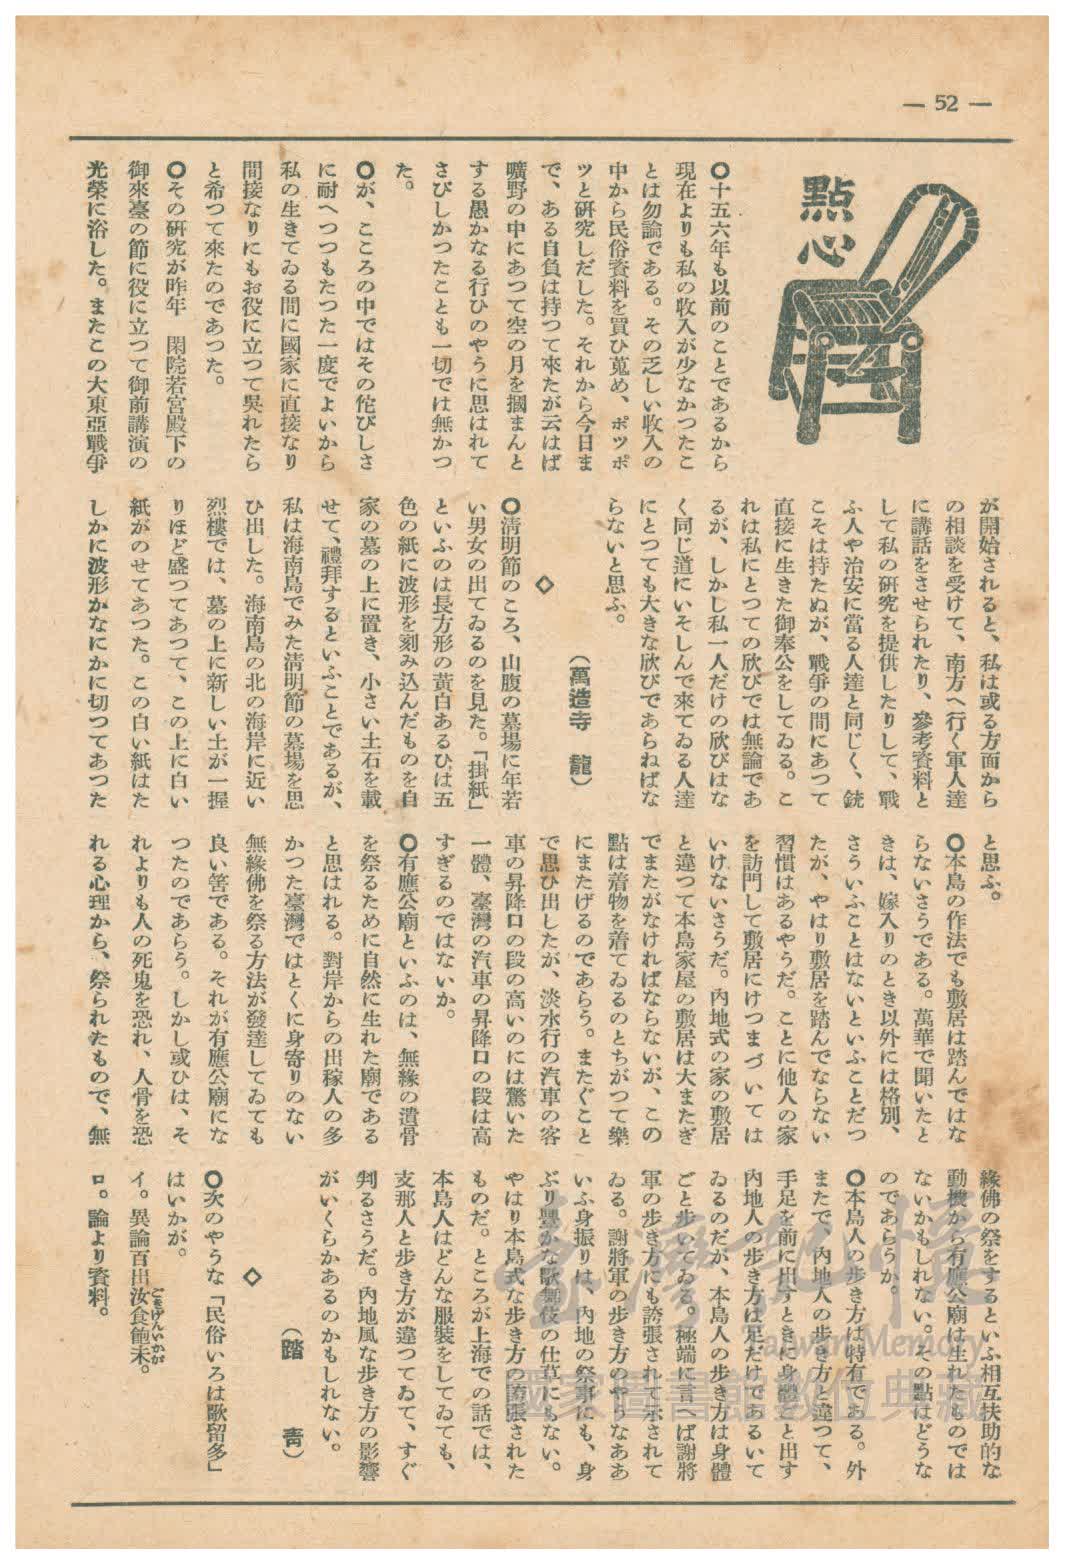 — 52 —
點心
○十五六年も以前のことであるから
現在よりも私の收入が少なかつたこ
とは勿論である。その乏しい收入の
中から民俗資料を買ひ蒐め、ポツポ
ツと研究しだした。それから今日ま
で、ある自負は持つて來たが云はば
曠野の中にあつて空の月を摑まんと
する愚かなる行ひのやうに思はれて
さびしかつたことも一切では無かつ
た。
○が、こころの中ではその侘びしさ
に耐へつつもたつた一度でよいから
私の生きてゐる間に國家に直接なり
間接なりにもお役に立つて吳れたら
と希つて來たのであつた。
○その研究が昨年　閑院若宮殿下の
御來臺の節に役に立つて御前講演の
光榮に浴した。またこの大東亞戰爭
が開始されると、私は或る方面から
の相談を受けて、南方へ行く軍人達
に講話をさせられたり、參考資料と
して私の研究を提供したりして、戰
ふ人や治安に當る人達と同じく、銃
こそは持たぬが、戰爭の間にあつて
直接に生きた御奉公をしてゐる。こ
れは私にとつての欣びでは無論であ
るが、しかし私一人だけの欣びはな
く同じ道にいそしんで來てゐる人達
にとつても大きな欣びであらねばな
らないと思ふ。
（萬造寺　龍）
◇
○淸明節のころ、山腹の墓場に年若
い男女の出てゐるのを見た。「掛紙」
といふのは長方形の黃白あるひは五
色の紙に波形を刻み込んだものを自
家の墓の上に置き、小さい土石を載
せて、禮拜するといふことであるが、
私は海南島でみた淸明節の墓場を思
ひ出した。海南島の北の海岸に近い
烈樓では、墓の上に新しい土が一握
りほど盛つてあつて、この上に白い
紙がのせてあつた。この白い紙はた
しかに波形かなにかに切つてあつた
と思ふ。
○本島の作法でも敷居は踏んではな
らないさうである。萬華で聞いたと
きは、嫁入りのとき以外には格別、
さういふことはないといふことだつ
たが、やはり敷居を踏んでならない
習慣はあるやうだ。ことに他人の家
を訪門して敷居にけつまづいては
いけないさうだ。內地式の家の敷居
と違つて本島家屋の敷居は大またぎ
でまたがなければならないが、この
點は着物を着てゐるのとちがつて樂
にまたげるのであらう。またぐこと
で思ひ出したが、淡水行の汽車の客
車の昇降口の段の高いのには驚いた
一體、臺灣の汽車の昇降口の段は高
すぎるのではないか。
○有應公廟といふのは、無緣の遺骨
を祭るために自然に生れた廟である
と思はれる。對岸からの出稼人の多
かつた臺灣ではとくに身寄りのない
無緣佛を祭る方法が發達してゐても
良い筈である。それが有應公廟にな
つたのであらう。しかし或ひは、そ
れよりも人の死鬼を恐れ、人骨を恐
れる心理から、祭られたもので、無
緣佛の祭をするといふ相互扶助的な
動機から有應公廟は生れたものでは
ないかもしれない。その點はどうな
のであらうか。
○本島人の步き方は特有である。外
までで、內地人の步き方と違つて、
手足を前に出すときに身體ごと出す
內地人の步き方は足だけであるいて
ゐるのだが、本島人の步き方は身體
ごと步いてゐる。極端に言へば謝將
軍の步き方にも誇張されて示されて
ゐる。謝將軍の步き方のやうなああ
いふ身振りは、內地の祭事にも、身
ぶり豐かな歌舞伎の仕草にもない。
やはり本島式な步き方の誇張された
ものだ。ところが上海での話では、
本島人はどんな服裝をしてゐても、
支那人と步き方が違つてゐて、すぐ
判るさうだ。內地風な步き方の影響
がいくらかあるのかもしれない。
（踏　靑）
◇
○次のやうな「民俗いろは歌留多」
はいかが。
イ。異論百出汝食飽未。
ロ。論より資料。
臺灣記憶
Taiwan Memory
國家圖書館數位典藏